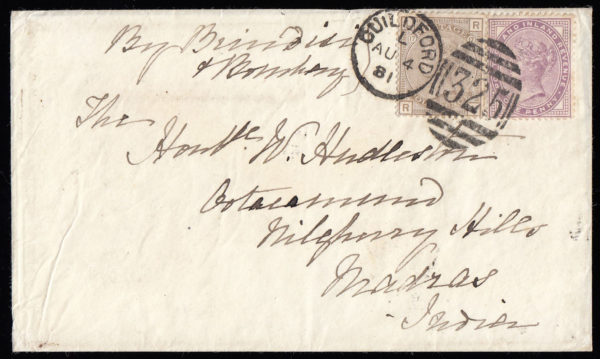 By Brindisi
& Bombay
GUILDFORD
L
AU 4
81
R
R
325
AND INLAND REVENUE
PENNY
The
Honble W. Hudleston
Ootacamund
Nilgherry Hills
Madras
India